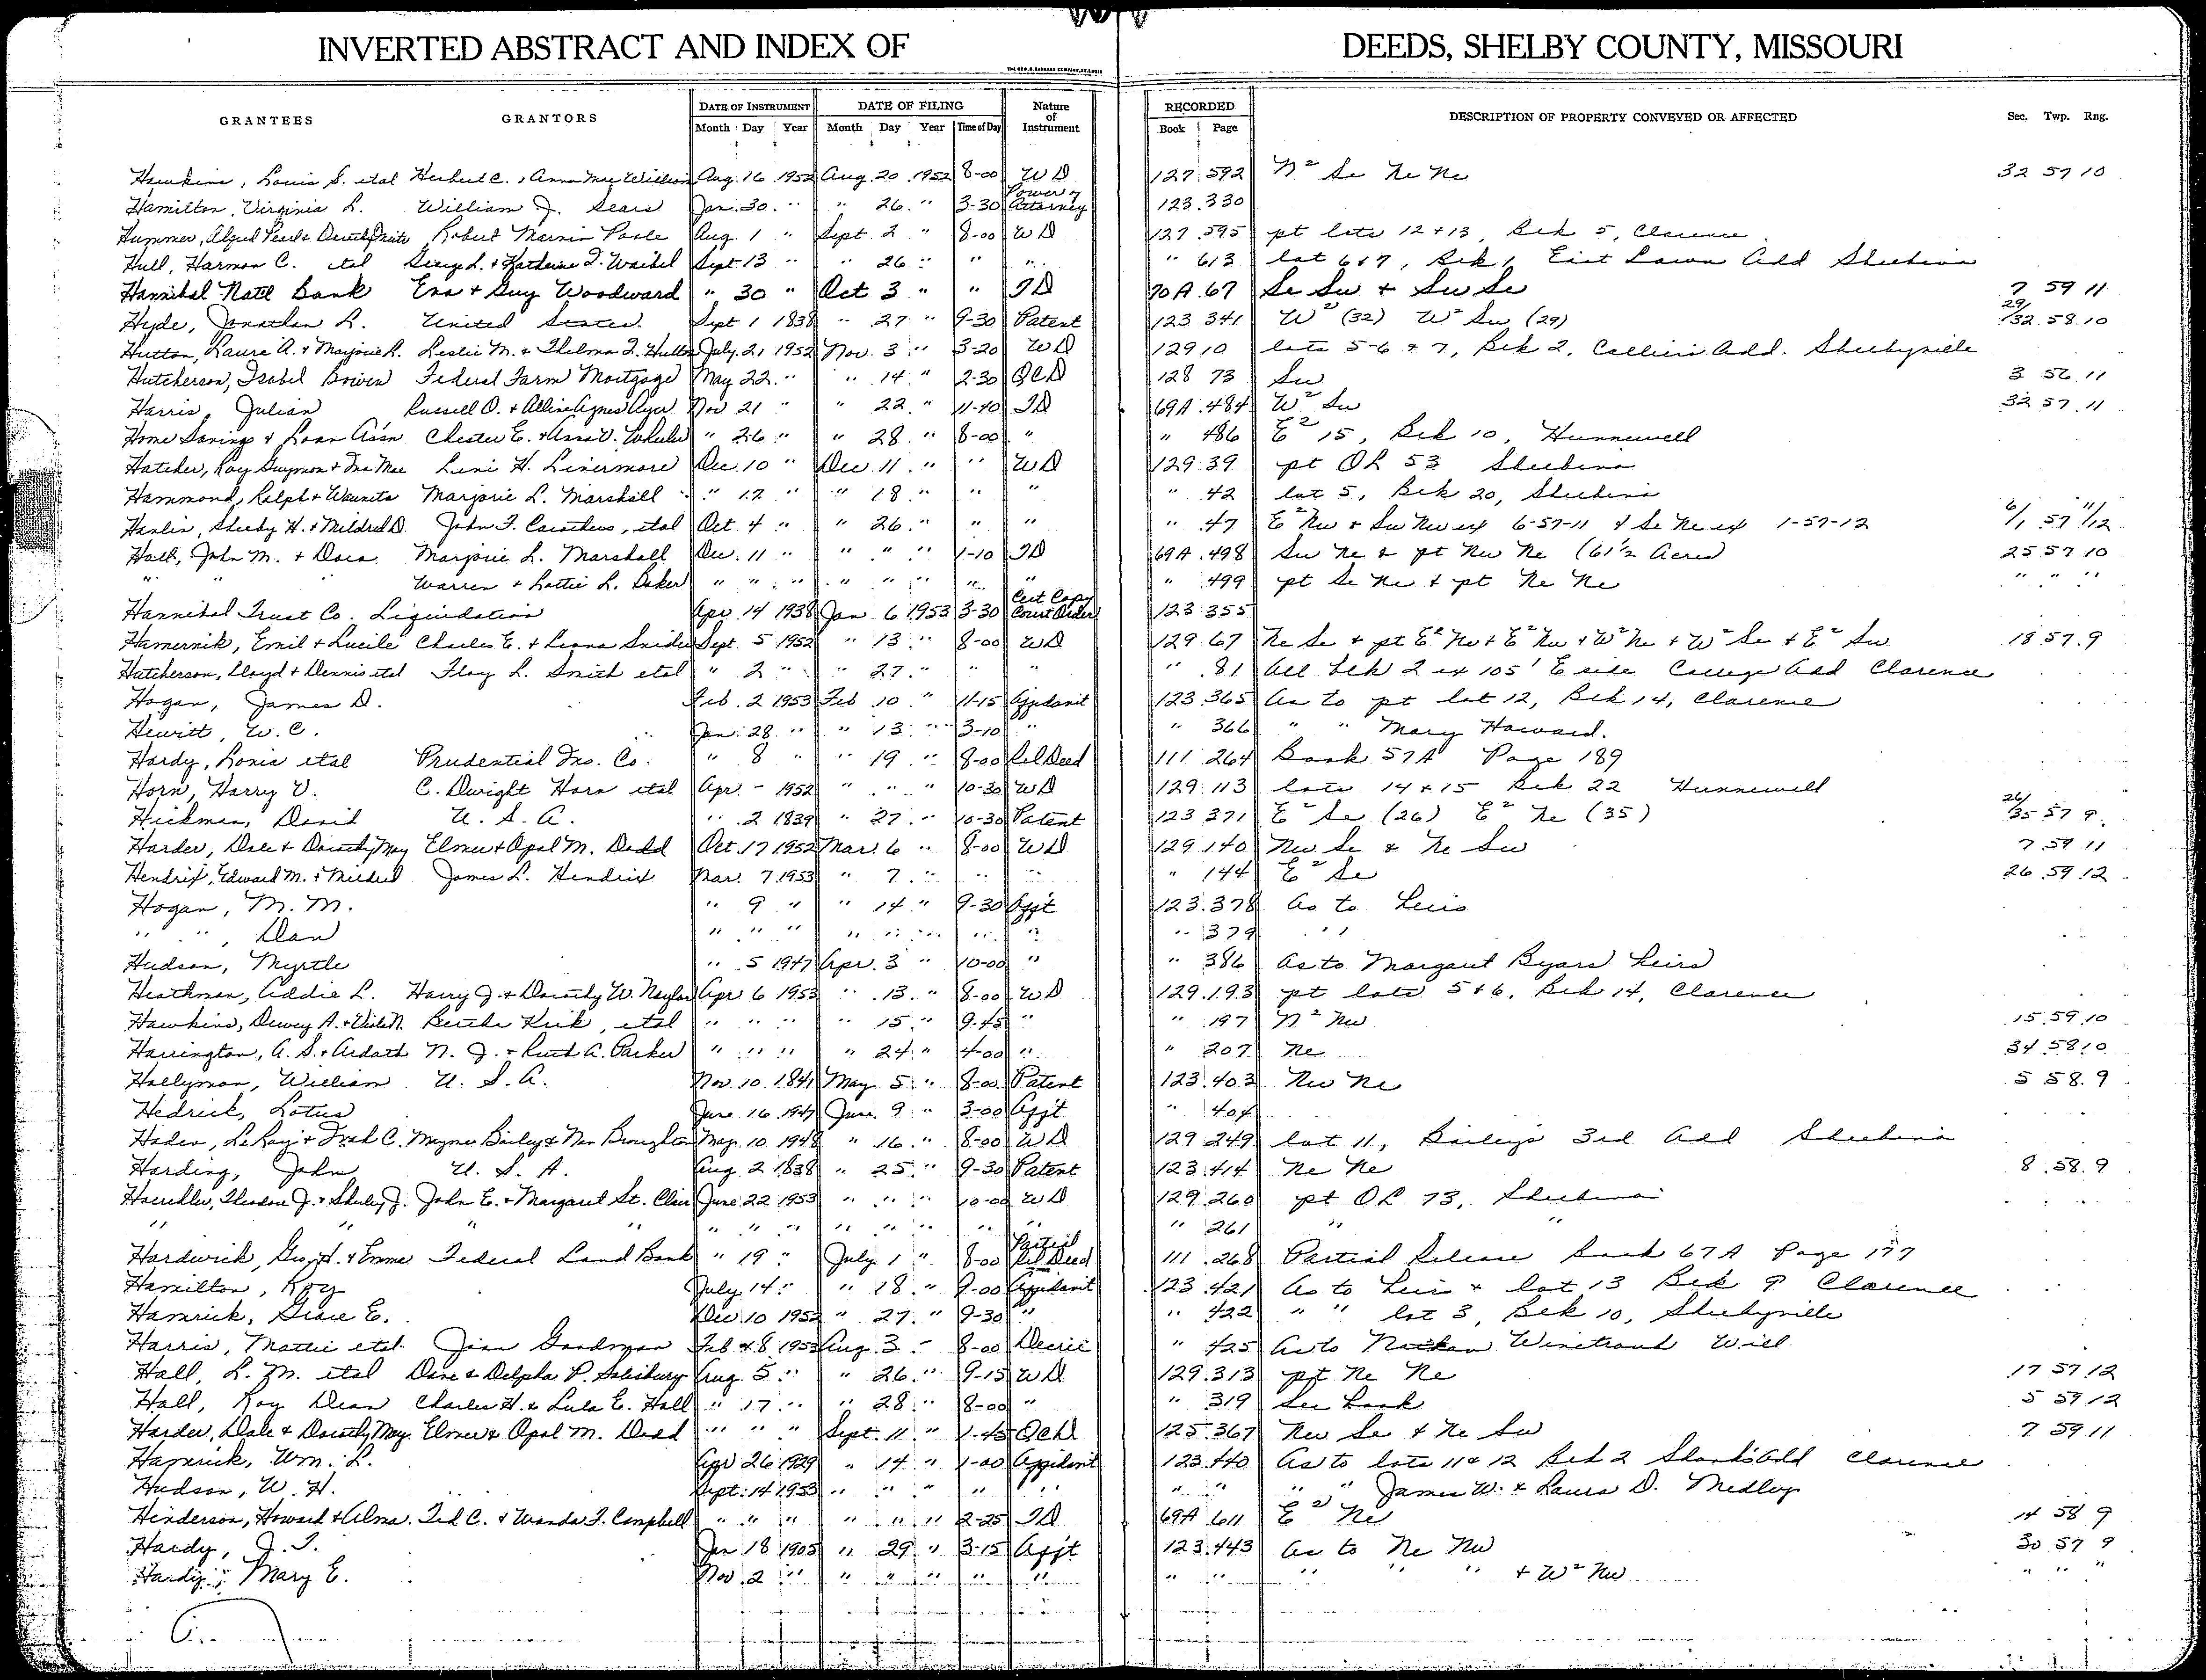 INVERTED ABSTRACT AND INDEX OF DEEDS, SHELBY COUNTY, MISSOURI
GRANTEES GRANTORS DATE OF INSTRUMENT DATE OF FILING Nature of Instrument RECORDED DESCRIPTION OF PROPERTY CONVEYED OR AFFECTED Sec. Twp. Rng.
Month Day Year Month Day Year Time of Day Book Page
Hawkins, Louis S. etal Herbert C., Anna Mae Wilson Aug. 16 1952 Aug. 20 1952 8-00 WD 127 592 N² Se Ne Ne 32 57 10
Hamilton, Virginia L. William J. Sears Jan. 30 " " 26 " 3-30 Power of Attorney 123 330
Hummer, Alfred Pearl & Robert Marvin Poole Aug. 1 " Sept. 2 " 8-00 WD 127 595 pt lots 12 + 13, Blk 5, Clarence
Hull, Harmon C. etal George L. + Katherine I. Waibel Sept. 13 " " 26 " " " " 613 lot 6 & 7, Blk 1, East Lawn Add Shelbina
Hannibal Natl Bank Eva + Guy Woodward " 30 " Oct 3 " " TD 70A 67 Se Sw + Sw Se 7 59 11
Hyde, Jonathan L. United States Sept 1 1838 " 27 " 9-30 Patent 123 341 W² (32) W² Sw (29) 29/32 58 10
Hutton, Laura A. + Marjorie L. Leslie M. & Thelma I. Hutton July 21 1952 Nov. 3 " 3-20 WD 129 10 lots 5-6 & 7, Blk 2, Colliers Add. Shelbyville
Hutcherson, Isabel Bowen Federal Farm Mortgage May 22 " " 14 " 2-30 QCD 128 73 Sw 3 56 11
Harris, Julian Russell O. + Alline Agnes Ayer Nov 21 " " 22 " 11-40 TD 69A 484 W² Sw 32 57 11
Home Savings & Loan Ass'n Chester E. + Anna V. Wheeler " 26 " " 28 " 8-00 " " 486 E² 15, Blk 10, Hunnewell
Hatcher, Roy Guymon + Ina Mae Leni H. Livermore Dec. 10 " Dec. 11 " " WD 129 39 pt OL 53 Shelbina
Hammond, Ralph + Waunita Marjorie L. Marshall " 17 " " 18 " " " " 42 lot 5, Blk 20, Shelbina
Hanlin, Shelby H. + Mildred D John F. Carothers, etal Oct. 4 " " 26 " " " " 47 E² Nw + Sw Nw ex 6-57-11 & Se Ne ex 1-57-12 6/1 57 11/12
Hall, John M. + Dora Marjorie L. Marshall Dec. 11 " " " " 1-10 TD 69A 498 Sw Ne & pt Nw Ne (61½ Acres) 25 57 10
" " " Warren + Lottie L. Baker " " " " " " " " " 499 pt Se Ne + pt Ne Ne " " "
Hannibal Trust Co. Liquidation Apr. 14 1938 Jan 6 1953 3-30 Cert Copy Court Order 123 355
Hamernik, Emil + Lucile Charles E. + Leona Snider Sept. 5 1952 " 13 " 8-00 WD 129 67 Ne Se + pt E² Nw + E² Nw + W² Ne + W² Se + E² Sw 18 57 9
Hutcherson, Lloyd + Dennis etal Floy L. Smith etal " 2 " " 27 " " " " 81 All blk 2 ex 105' E side College Add Clarence
Hogan, James D. Feb. 2 1953 Feb 10 " 11-15 Affidavit 123 365 As to pt lot 12, Blk 14, Clarence
Hewitt, W. C. Jan. 28 " " 13 " 3-10 " " 366 " " Mary Howard.
Hardy, Lonis etal Prudential Ins. Co. " 8 " " 19 " 8-00 Rel Deed 111 264 Book 57A Page 189
Horn, Harry V. C. Dwight Horn etal Apr. - 1952 " " " 10-30 WD 129 113 lots 14 + 15 Blk 22 Hunnewell
Hickman, David U. S. A. " 2 1839 " 27 " 10-30 Patent 123 371 E² Se (26) E² Ne (35) 26/35 57 9
Harder, Dale & Dorothy May Elmer & Opal M. Dodd Oct. 17 1952 Mar. 6 " 8-00 WD 129 140 Nw Se & Ne Sw 7 59 11
Hendrix, Edward M. + Mildred James L. Hendrix Mar. 7 1953 " 7 " " " " 144 E² Se 26 59 12
Hogan, M. M. " 9 " " 14 " 9-30 Aff't 123 378 As to Heirs
" ", Dan " " " " " " " " " 379 " "
Hudson, Myrtle " 5 1947 Apr. 3 " 10-00 " " 386 As to Margaret Byars heirs
Heathman, Addie L. Harry J. + Dorothy W. Naylor Apr 6 1953 " 13 " 8-00 WD 129 193 pt lots 5 & 6, Blk 14, Clarence
Hawkins, Dewey A. + Viola N. Bertha Kirk, etal " " " " 15 " 9-45 " " 197 N² Nw 15 59 10
Harrington, A. S. + Ardath N. J. + Ruth A. Parker " " " " 24 " 4-00 " " 207 Ne 34 58 10
Hollyman, William U. S. A. Nov. 10 1841 May 5 " 8-00 Patent 123 403 Nw Ne 5 58 9
Hedrick, Lotus June 16 1947 June 9 " 3-00 Aff't " 404
Haden, LeRoy + C. Maymes Bailey & Broughton May. 10 1948 " 16 " 8-00 WD 129 249 lot 11, Bailey's 3rd Add Shelbina
Harding, John U. S. A. Aug. 2 1838 " 25 " 9-30 Patent 123 414 Ne Ne 8 58 9
Theodore J. + Shirley J. John E. + Margaret St. Clair June 22 1953 " " " 10-00 WD 129 260 pt OL 73, Shelbina
" " " " " " " " " " " " " 261 " "
Hardwick, Geo. H. + Emma Federal Land Bank " 19 " July 1 " 8-00 Partial Rel Deed 111 268 Partial Release Book 67A Page 177
Hamilton, Roy July 14 " " 18 " 9-00 Affidavit 123 421 As to heirs & lot 13 Blk 9 Clarence
Hamrick, Grace E. Dec. 10 1952 " 27 " 9-30 " " 422 " " lot 3, Blk 10, Shelbyville
Harris, Mattie etal Jim Goodman Feb 8 1953 Aug. 3 - 8-00 Decree " 425 As to Will
Hall, L. M. etal Dave & Delpha P. Salisbury Aug 5 " " 26 " 9-15 WD 129 313 pt Ne Ne 17 57 12
Hall, Roy Dean Charles H. & Lula E. Hall " 17 " " 28 " 8-00 " " 319 See book 5 59 12
Harder, Dale & Dorothy May Elmer & Opal M. Dodd " " " Sept. 11 " 1-45 QCD 125 367 Nw Se + Ne Sw 7 59 11
Hamrick, Wm. L. Apr 26 1929 " 14 " 1-00 Affidavit 123 440 As to lots 11 & 12 Blk 2 Shanks Add Clarence
Hudson, W. H. Sept. 14 1953 " " " " " " " " " James W. & Laura D. Medley
Henderson, Howard & Alma. Ted C. & Wanda F. Campbell " " " " " " 2-25 TD 69A 611 E² Ne 14 58 9
Hardy, J. T. Jan 18 1905 " 29 " 3-15 Aff't 123 443 As to Ne Nw 30 57 9
Hardy, Mary E. Nov. 2 " " " " " " " " " " " + W² Nw " " "